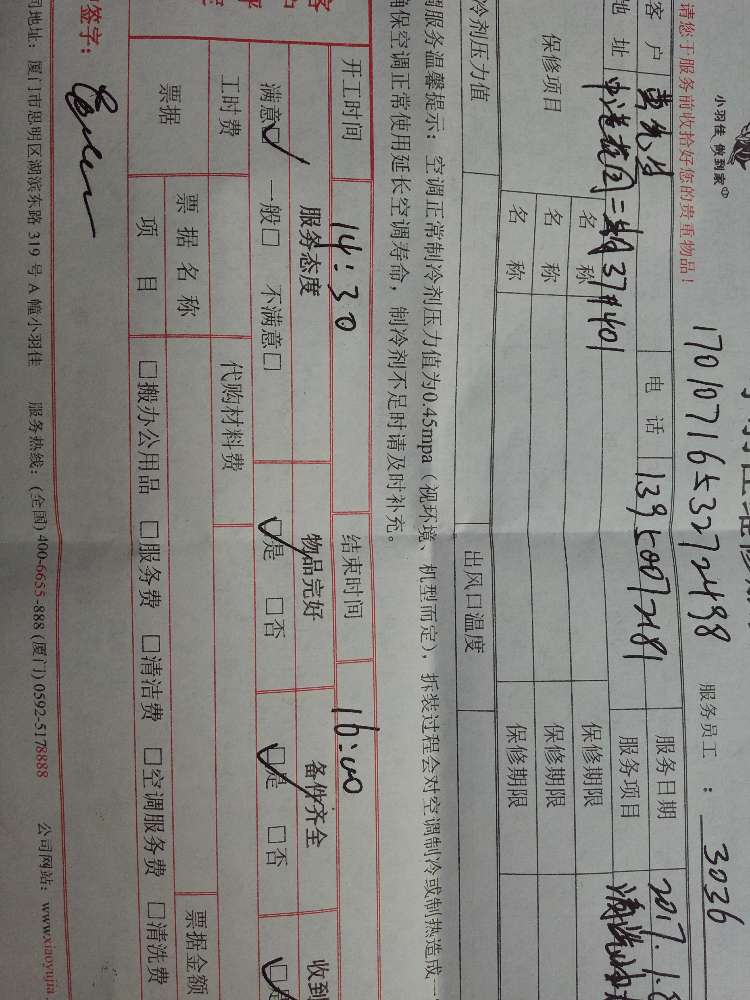 小羽佳 做到家
请您于服务前收拾好您的贵重物品!
1701071653272498
服务员工 : 3036
客户 黄先生 电话 13950072181 服务日期 2017.1.8
地址 二期37#401 服务项目 清洗
保修项目 名称 保修期限
名称 保修期限
名称 保修期限
冷剂压力值 出风口温度
调服务温馨提示: 空调正常制冷剂压力值为0.45mpa (视环境、机型而定), 拆装过程会对空调制冷或制热造成一
确保空调正常使用延长空调寿命, 制冷剂不足时请及时补充。
开工时间 14:30 结束时间 16:00
服务态度 物品完好 备件齐全 收到
满意☑ 一般□ 不满意□ ☑是 □否 ☑是 □否 ☑是
工时费 代购材料费
票据 票据名称 票据金额
项目 □搬办公用品 □服务费 □清洁费 □空调服务费 □清洗费
签字:
司地址: 厦门市思明区湖滨东路 319 号 A 幢小羽佳 服务热线: (全国) 400-6655-888 (厦门) 0592-5178888 公司网站: www.xiaoyujia.